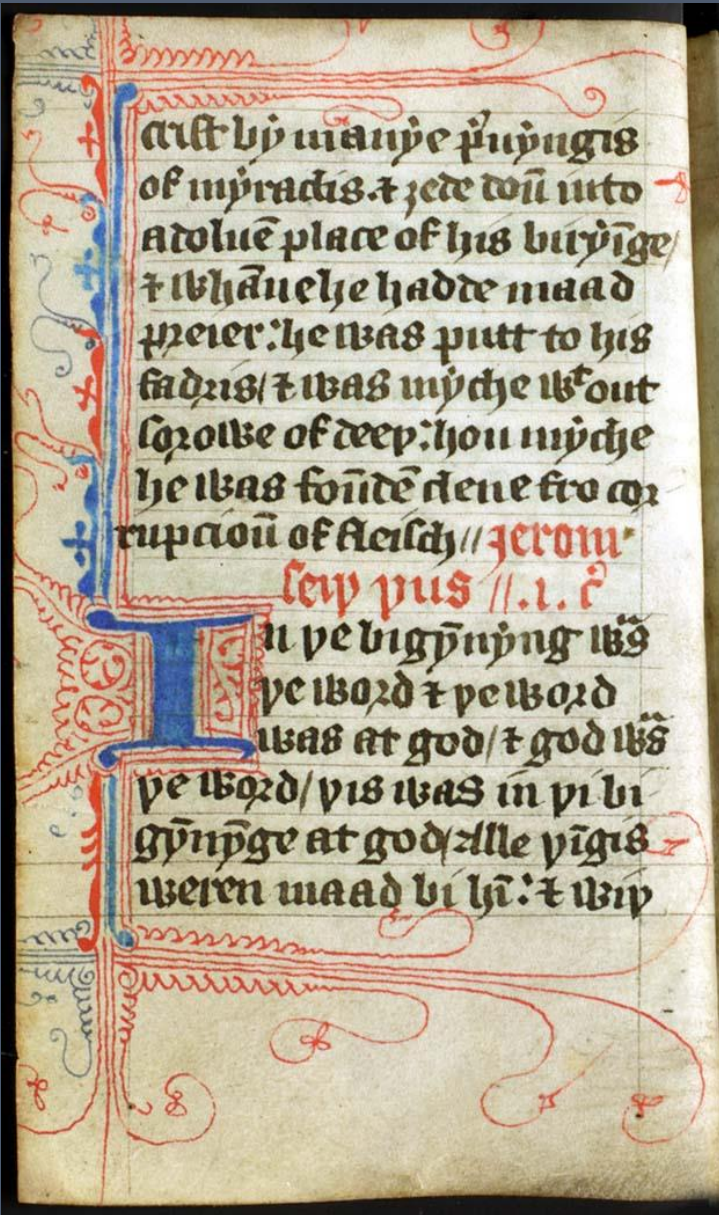 crist by manye p̓uyngis
of myraclis. ⁊ ȝede doū into
a doluē place of his biryīge/
⁊ whāne he hadde maad
preier: he was putt to his
fadris/ ⁊ was myche wᵗ out
sorowe of deeþ: hou myche
he was foūdē clene fro cor
rupcioū of fleisch // Jerom
seiþ þus //.1. c̓
In þe bigȳnyng wᵃs
þe word ⁊ þe word
was at god/ ⁊ god wᵃs
þe word/ þis was in þi bi
gȳnȳge at god/ Alle þīgis
weren maad bi hī: ⁊ wiþ